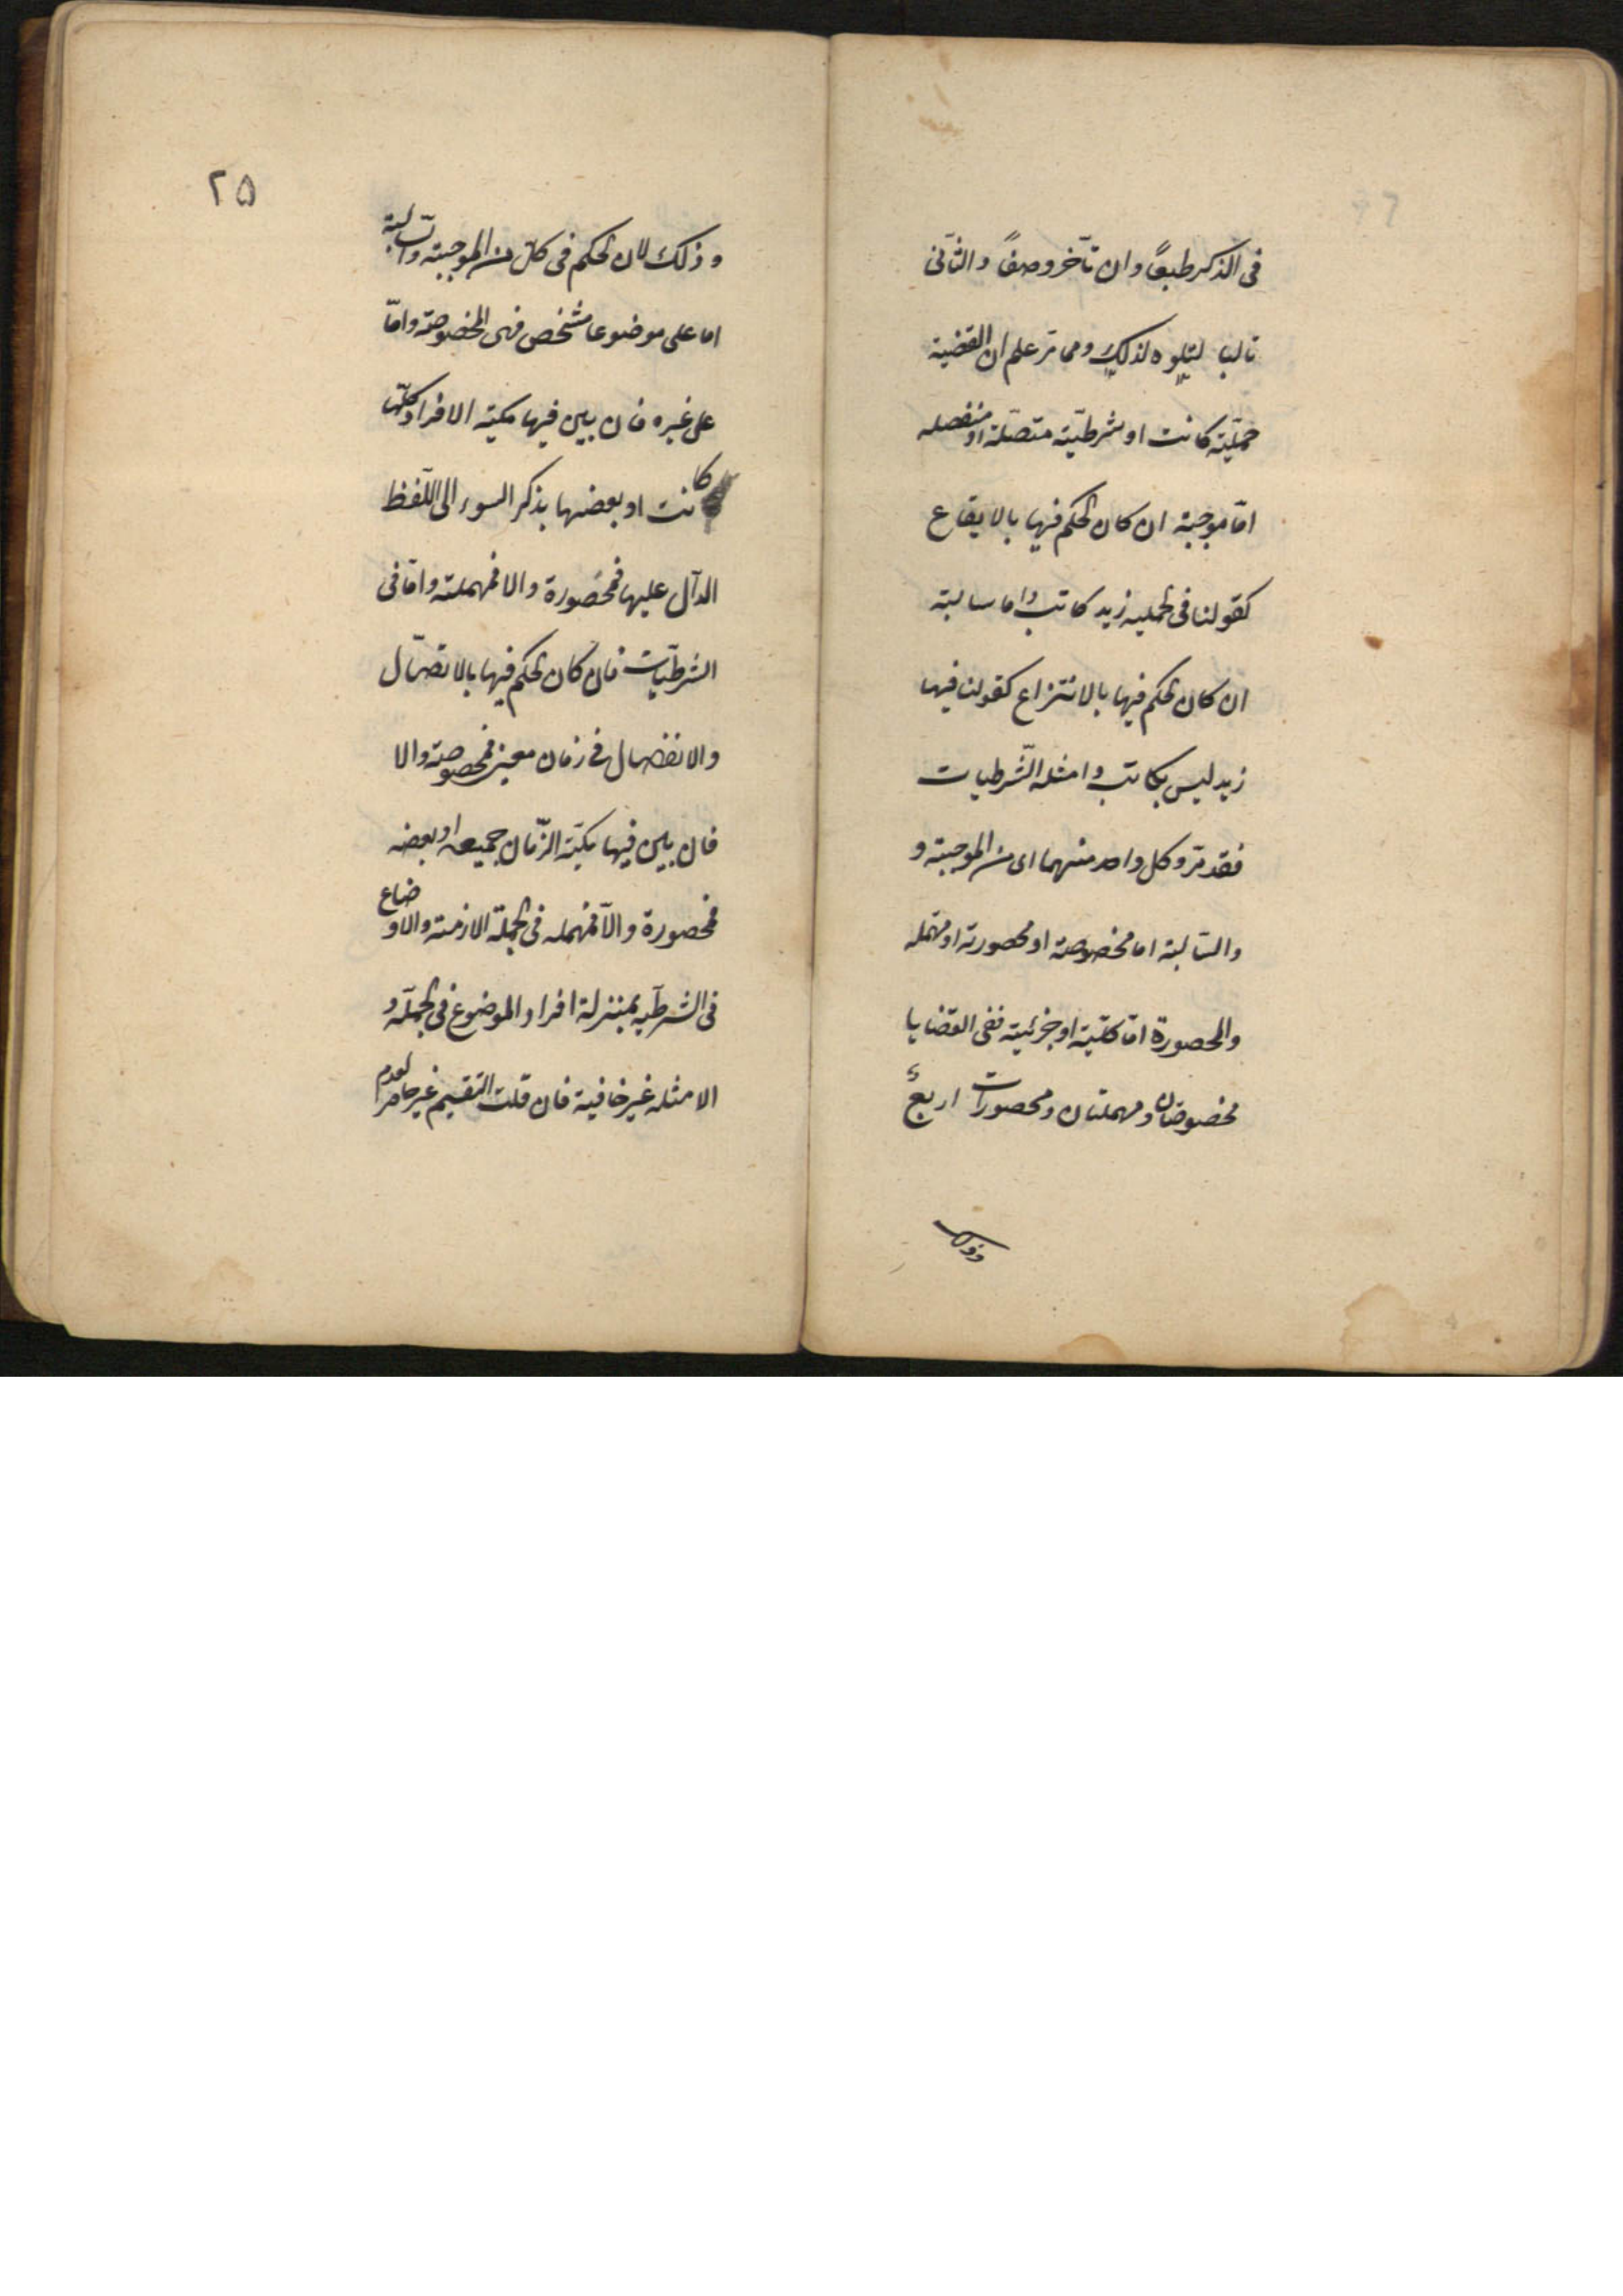 فى الذكر طبعًا وان تأخر وصفًا والثانى
تاليا لتلوه لذلك ومما مر علم ان القضية
حمليّة كانت او شرطيّة متصلة او منفصله
امّا موجبة ان كان الحكم فيها بالايقاع
كقولنا فى الحمليه زيد كاتب واما سالبة
ان كان الحكم فيها بالانتزاع كقولنا فيها
زيد ليس بكاتب وامثله الشّرطيات
فقد مرّ وكل واحد منهما اى من الموجبة و
والسّالبة اما مخصوصة او محصورة او مهمله
والمحصورة امّا كليّة او جزئية ففى القضايا
مخصوصتان ومهملتان ومحصورات اربعٌ
وذلك
٢٥
وذلك لان الحكم فى كلّ من الموجبة والسّالبة
اما على موضوعا مشخص فهى المخصوصة وامّا
على غيره فان بين فيها كمية الافراد كلّها
كانت او بعضها بذكر السور اى اللّفظ
الدآل عليها فمحصورة والا فمهملة وامّا فى
الشرطيّات فان كان الحكم فيها بالاتصال
والانفصال فى زمان معين فمخصوصة والا
فان بين فيها كميّة الزّمان جميعه او بعضه
فمحصورة والّا فمهمله فى الجملة الازمنة والاوضاع
فى الشرطيّه بمنزلة افراد الموضوع فى الحمليّه و
الامثله غير خافية فان قلت التقسيم غير حاصر لعدم